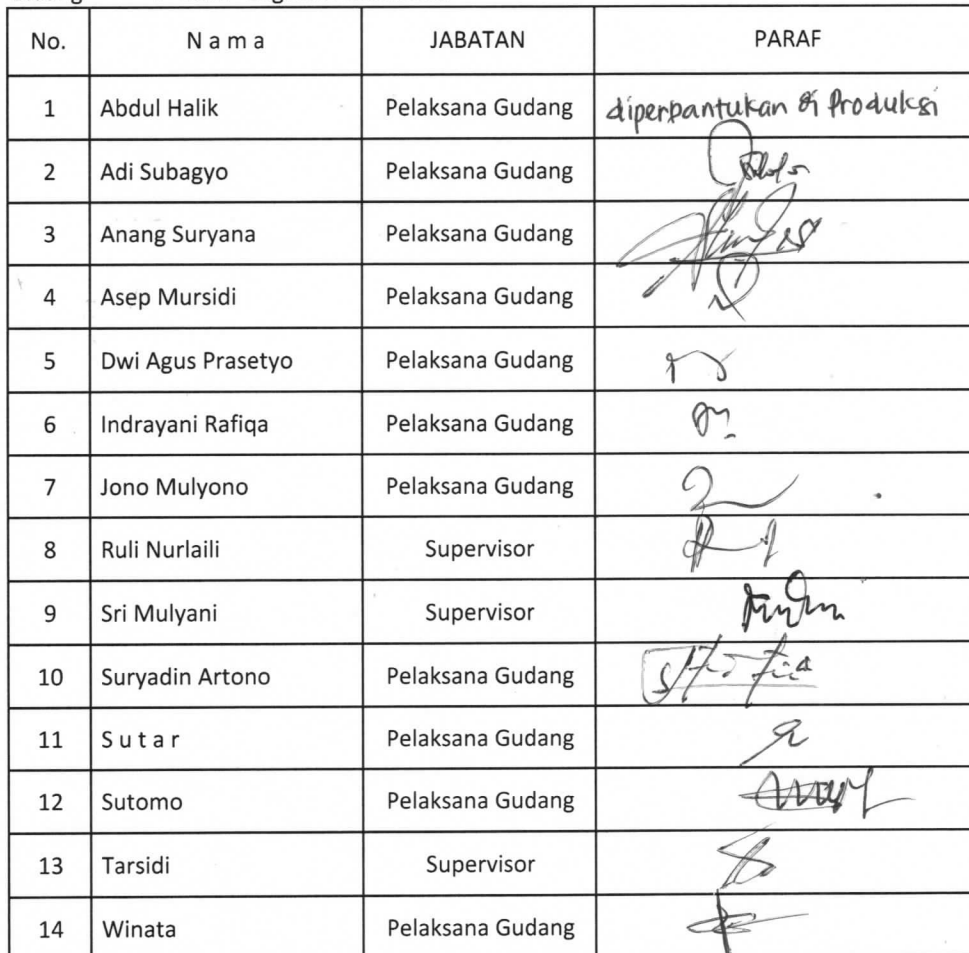 No. N a m a JABATAN PARAF
1 Abdul Halik Pelaksana Gudang diperbantukan di Produksi
2 Adi Subagyo Pelaksana Gudang
3 Anang Suryana Pelaksana Gudang
4 Asep Mursidi Pelaksana Gudang
5 Dwi Agus Prasetyo Pelaksana Gudang
6 Indrayani Rafiqa Pelaksana Gudang
7 Jono Mulyono Pelaksana Gudang
8 Ruli Nurlaili Supervisor
9 Sri Mulyani Supervisor
10 Suryadin Artono Pelaksana Gudang
11 S u t a r Pelaksana Gudang
12 Sutomo Pelaksana Gudang
13 Tarsidi Supervisor
14 Winata Pelaksana Gudang